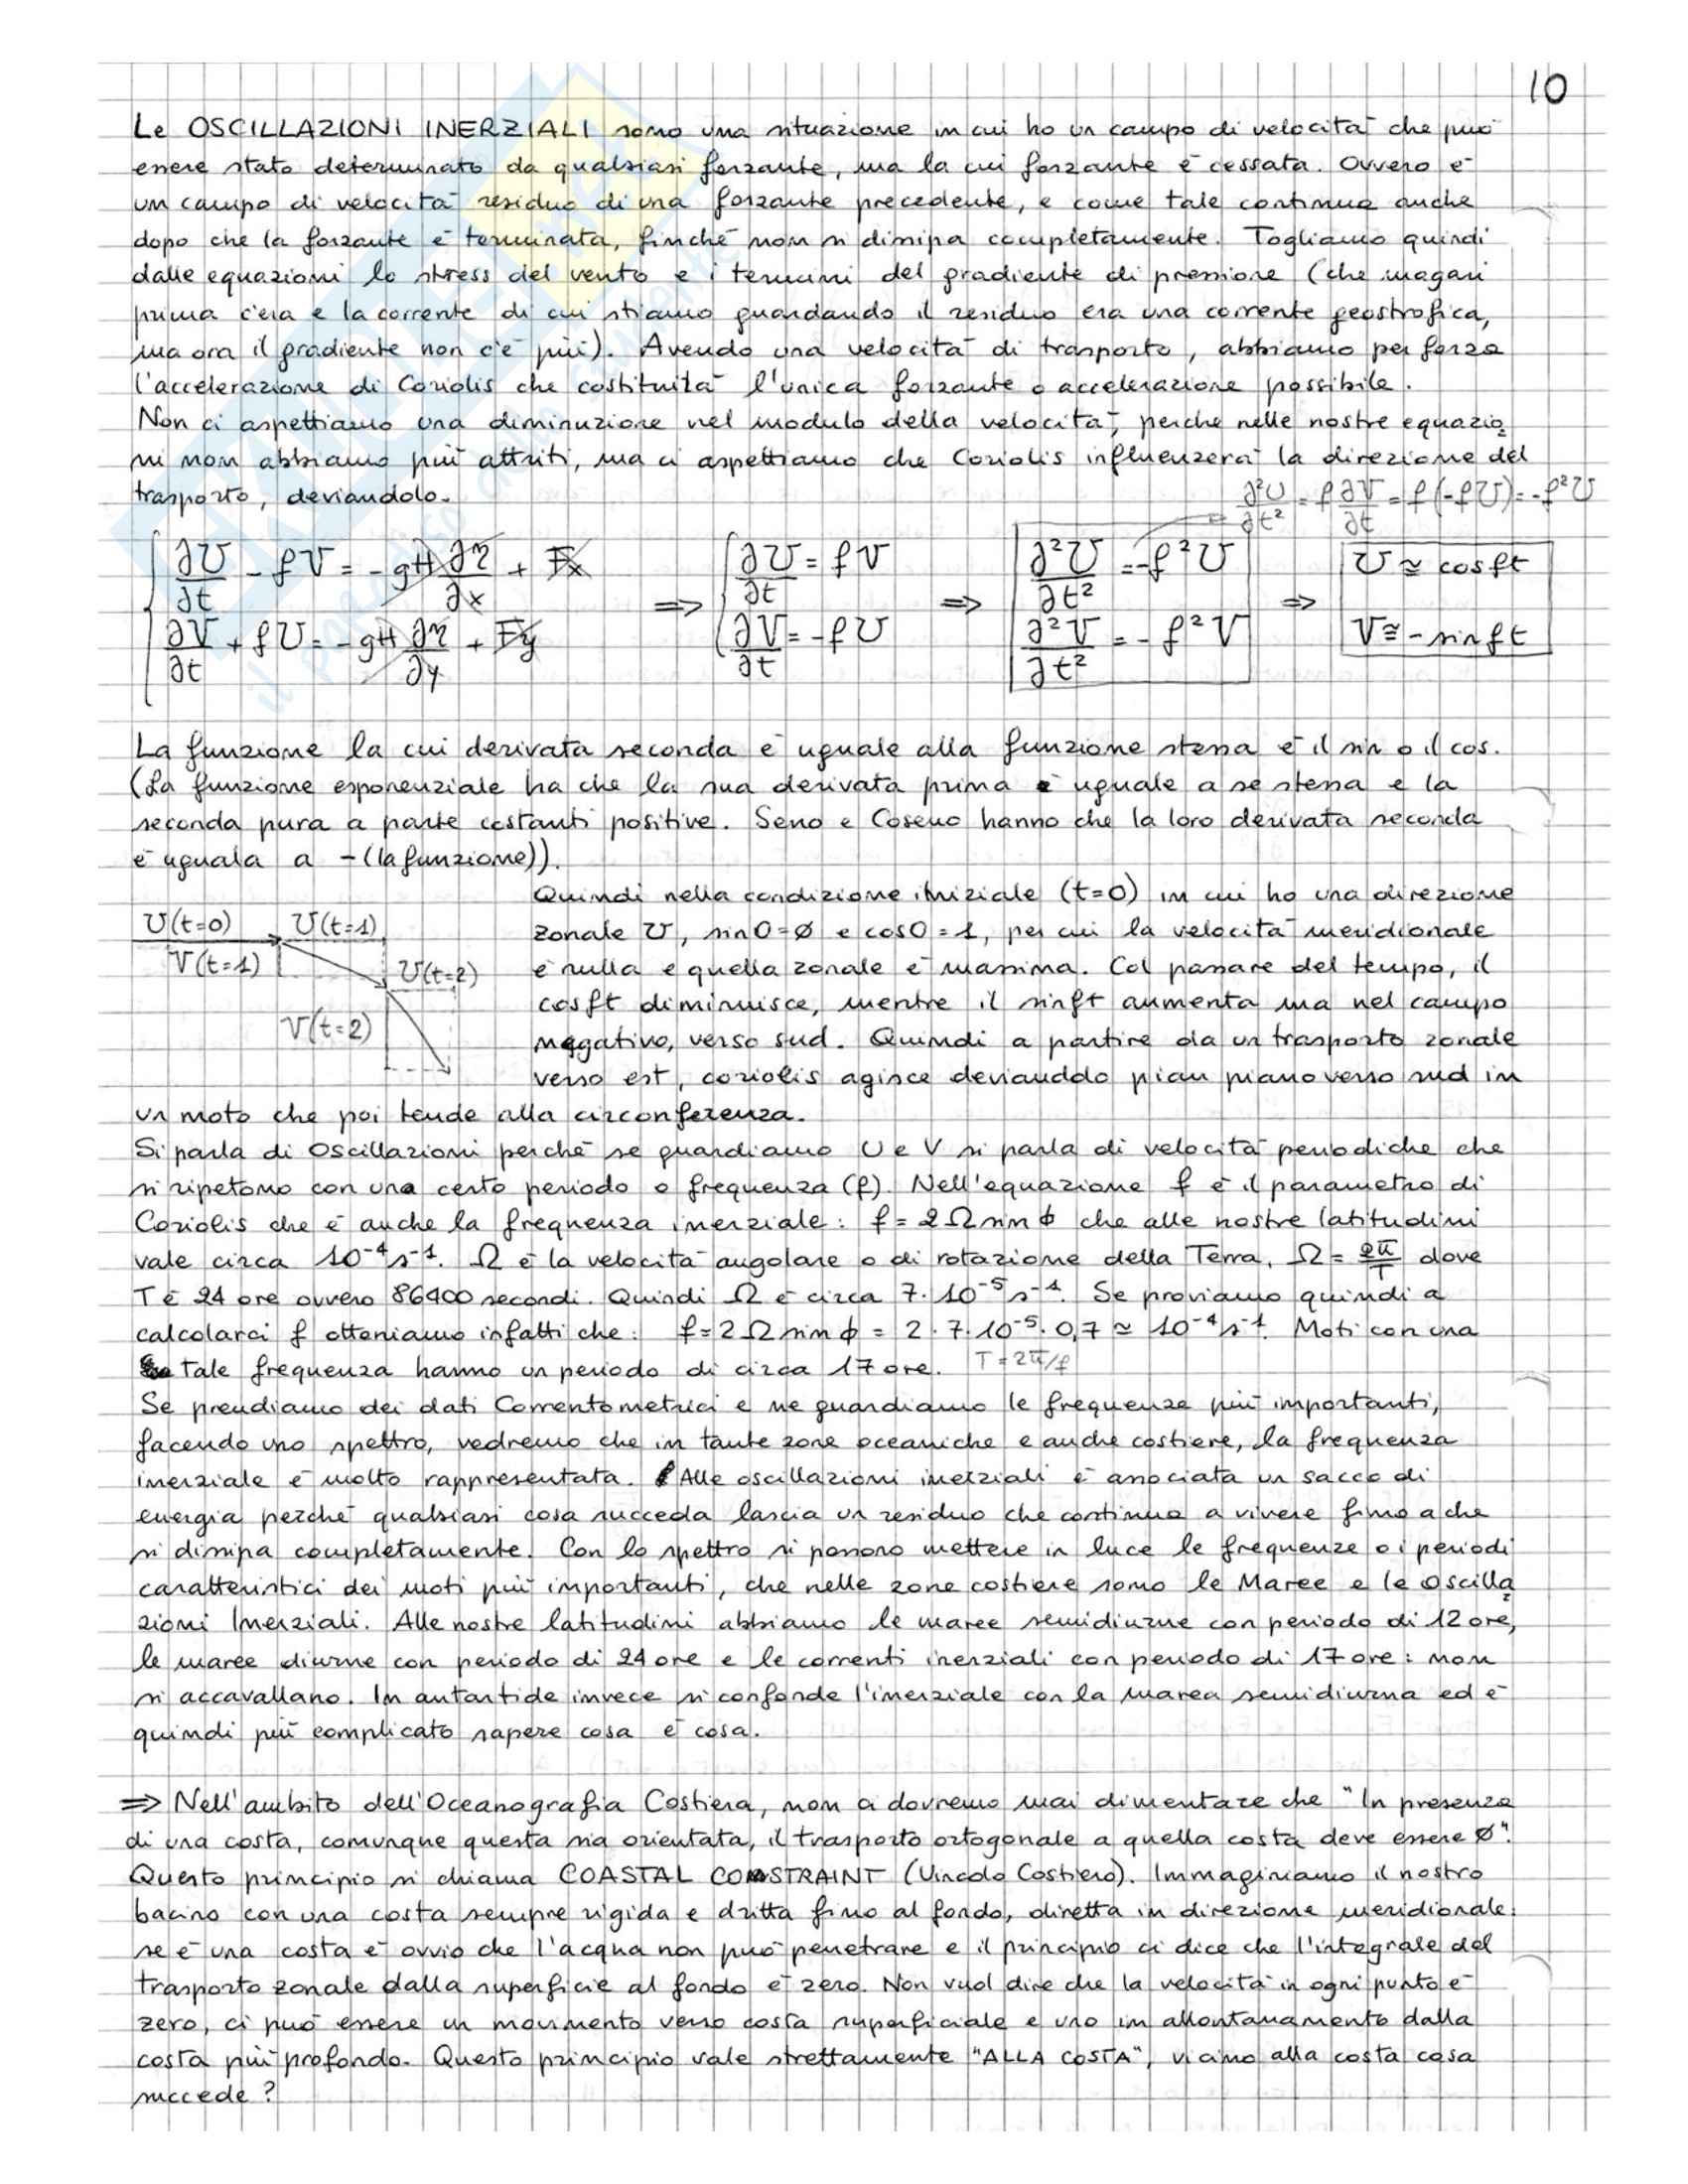 10
Le OSCILLAZIONI INERZIALI sono una situazione in cui ho un campo di velocità che può
essere stato determinato da qualsiasi forzante, ma la cui forzante è cessata. Ovvero è
un campo di velocità residuo di una forzante precedente, e come tale continua anche
dopo che la forzante è terminata, finché non si dissipa completamente. Togliamo quindi
dalle equazioni lo stress del vento e i termini del gradiente di pressione (che magari
prima c'era e la corrente di cui stiamo guardando il residuo era una corrente geostrofica,
ma ora il gradiente non c'è più). Avendo una velocità di trasporto, abbiamo per forza
l'accelerazione di Coriolis che costituità l'unica forzante o accelerazione possibile.
Non ci aspettiamo una diminuzione nel modulo della velocità, perché nelle nostre equazio
ni non abbiamo più attriti, ma ci aspettiamo che Coriolis influenzerà la direzione del
trasporto, deviandolo.
∂²U/∂t² = f ∂V/∂t = f(-fU) = -f²U
∂U/∂t - fV = -gH ∂η/∂x + Fx ⇒ ∂U/∂t = fV ⇒ ∂²U/∂t² = -f²U ⇒ U ≃ cosft
∂V/∂t + fU = -gH ∂η/∂y + Fy ∂V/∂t = -fU ∂²V/∂t² = -f²V V ≅ -sinft
La funzione la cui derivata seconda è uguale alla funzione stessa è il sin o il cos.
(La funzione esponenziale ha che la sua derivata prima è uguale a se stessa e la
seconda pura a parte costanti positive. Seno e Coseno hanno che la loro derivata seconda
è uguala a -(la funzione)).
Quindi nella condizione iniziale (t=0) in cui ho una direzione
zonale U, sin0=ø e cos0=1, per cui la velocità meridionale
è nulla e quella zonale è massima. Col passare del tempo, il
cosft diminuisce, mentre il sinft aumenta ma nel campo
negativo, verso sud. Quindi a partire da un trasporto zonale
verso est, coriolis agisce devianddo pian piano verso sud in
U(t=0) U(t=1)
V(t=1) U(t=2)
V(t=2)
un moto che poi tende alla circonferenza.
Si parla di Oscillazioni perché se guardiamo U e V si parla di velocità periodiche che
si ripetono con una certo periodo o frequenza (f). Nell'equazione f è il parametro di
Coriolis che è anche la frequenza inerziale: f = 2Ωsinϕ che alle nostre latitudini
vale circa 10⁻⁴s⁻¹. Ω è la velocità angolare o di rotazione della Terra, Ω = 2π/T dove
T è 24 ore ovvero 86400 secondi. Quindi Ω è circa 7·10⁻⁵s⁻¹. Se proviamo quindi a
calcolarci f otteniamo infatti che: f=2Ωsinϕ = 2·7·10⁻⁵·0,7 ≃ 10⁻⁴s⁻¹. Moti con una
Tale frequenza hanno un periodo di circa 17 ore. T=2π/f
Se prendiamo dei dati Correntometrici e ne guardiamo le frequenze più importanti,
facendo uno spettro, vedremo che in tante zone oceaniche e anche costiere, la frequenza
inerziale è molto rappresentata. Alle oscillazioni inerziali è associata un sacco di
energia perché qualsiasi cosa succeda lascia un residuo che continua a vivere fino a che
si dissipa completamente. Con lo spettro si possono mettere in luce le frequenze o i periodi
caratteristici dei moti più importanti, che nelle zone costiere sono le Maree e le Oscilla
zioni Inerziali. Alle nostre latitudini abbiamo le maree semidiurne con periodo di 12 ore,
le maree diurne con periodo di 24 ore e le correnti inerziali con periodo di 17 ore: non
si accavallano. In antartide invece si confonde l'inerziale con la marea semidiurna ed è
quindi più complicato sapere cosa è cosa.
⇒ Nell'ambito dell'Oceanografia Costiera, non ci dovremo mai dimenticare che "In presenza
di una costa, comunque questa sia orientata, il trasporto ortogonale a quella costa deve essere ø".
Questo principio si chiama COASTAL CONSTRAINT (Vincolo Costiero). Immaginiamo il nostro
bacino con una costa sempre rigida e dritta fino al fondo, diretta in direzione meridionale:
se è una costa è ovvio che l'acqua non può penetrare e il principio ci dice che l'integrale del
trasporto zonale dalla superficie al fondo è zero. Non vuol dire che la velocità in ogni punto è
zero, ci può essere un movimento verso costa superficiale e uno in allontanamento dalla
costa più profondo. Questo principio vale strettamente "ALLA COSTA", vicino alla costa cosa
succede?